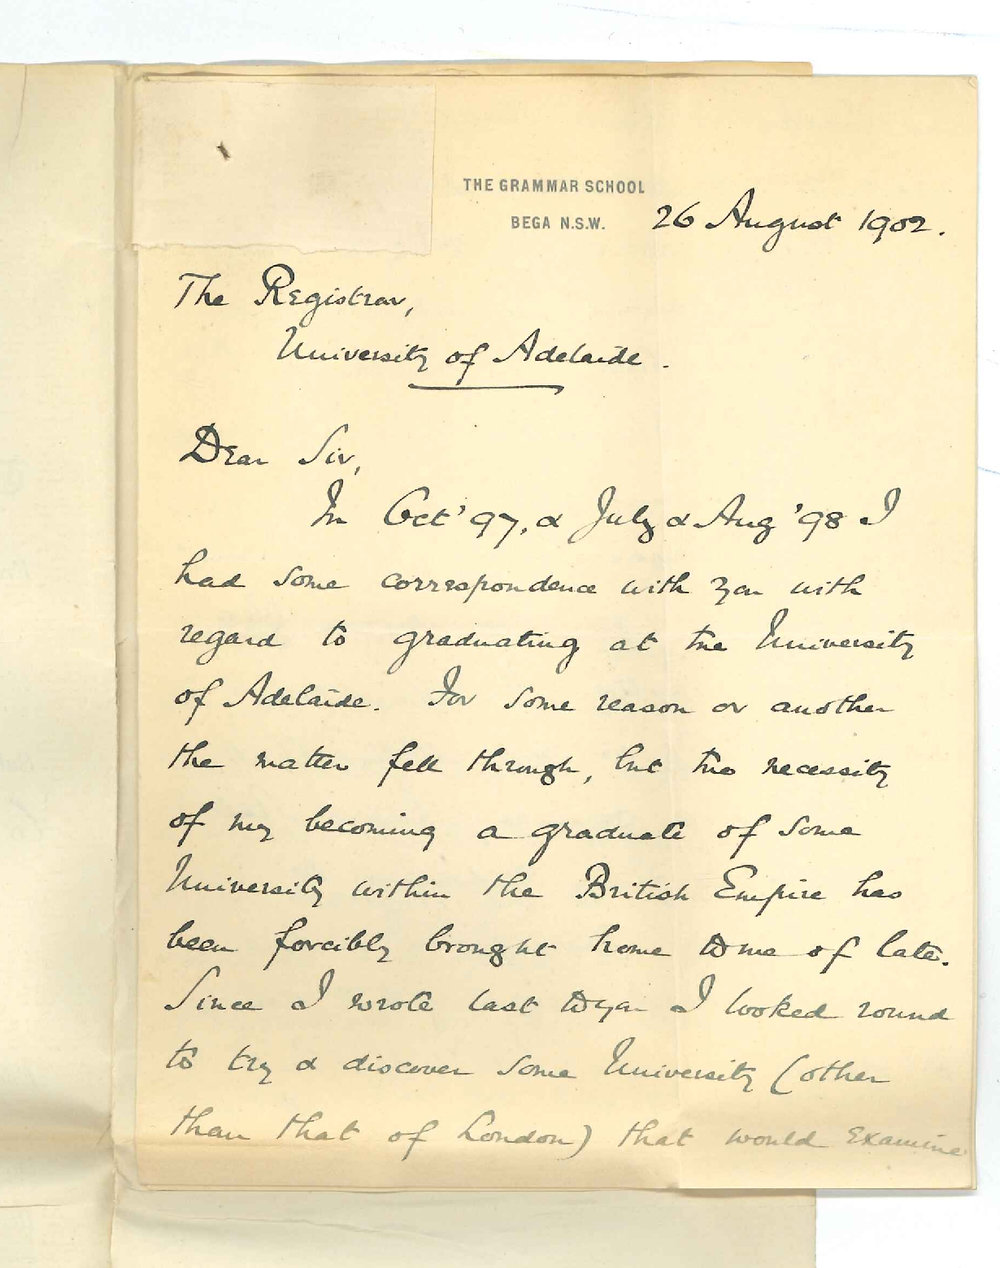 THE GRAMMAR SCHOOL
BEGA N.S.W.
26 August 1902.
The Registrar,
University of Adelaide.
Dear Sir,
In Oct '97, & July & Aug '98 I
had some correspondence with you with
regard to graduating at the University
of Adelaide. For some reason or another
the matter fell through, but the necessity
of my becoming a graduate of some
University within the British Empire has
been forcibly brought home to me of late.
Since I wrote last to you I looked round
to try & discover some University (other
than that of London) that would examine